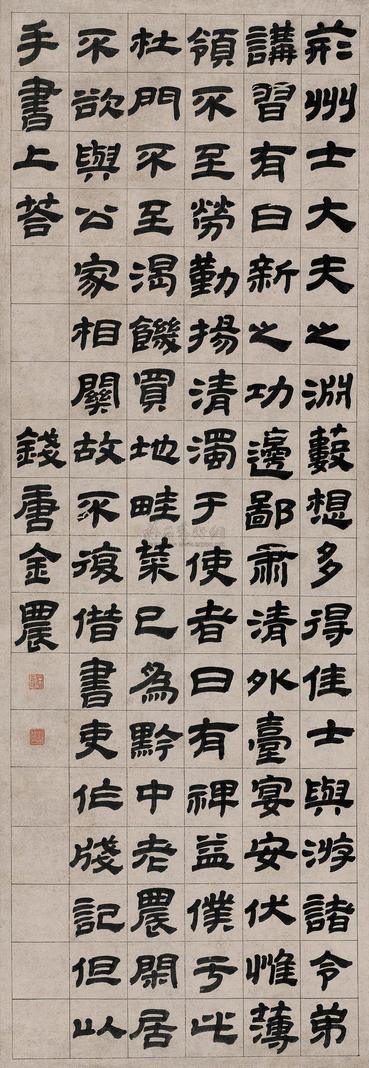 荊州士大夫之淵藪想多得佳士與游諸令弟
講習有日新之功邊鄙肅清外臺宴安伏惟薄
領不至勞勤揚清濁于使者日有裨益僕于此
杜門不至渴饑買地畦菜已為黔中老農閑居
不欲與公家相關故不復借書吏作牋記但以
手書上荅 錢唐金農